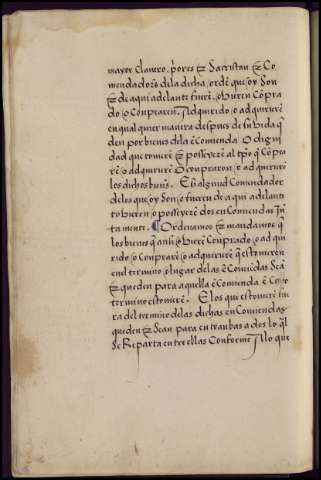 mayor Clavero. p̃ores ⁊ Sacristan ⁊ Co
mendadores de la dicha ordẽ que oy Son
⁊ de aqui adelante fuerẽ. o uieren Cõpra
do. o Compraren. Adquirido. o adquirierẽ
en qualquier manera despues de su vida q̃
den por bienes de la ẽComienda. O digni
dad que touierẽ ⁊ posseyerẽ al tp̃o q̃ Cõpra
rẽ. o adquirierẽ. O Compraron. o adquirierõ
los dichos bienẽs. E si algund Comendador
de los que oy Son. o fueren de aqui adelante
touieren. o posseyerẽ dos enComiendas Jũ
tamente. ¶ Ordenamos ⁊ mandamos q̃
los bienes q̃ ansi. o uierẽ Comprado. o adqui
rido. o Comprarẽ. o adquirierẽ q̃ estouieren
en el termino. o lugar de las ẽComiẽdas Seã
⁊ queden para aquella ẽComienda ẽ Cuyo
termino estouierẽ. E los que estouierẽ fue
ra del termino de las dichas enComiendas
queden ⁊ Sean para entranbas a dos lo q̃l
Se Reparta entre ellas Conforme A lo que